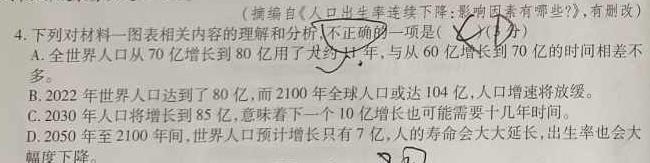 (摘编自《人口出生率连续下降:影响因素有哪些?》,有删改)
4. 下列对材料一图表相关内容的理解和分析,不正确的一项是( )(3分)
A. 全世界人口从 70 亿增长到 80 亿用了大约 11 年,与从 60 亿增长到 70 亿的时间相差不
多。
B. 2022 年世界人口达到了 80 亿,而 2100 年全球人口或达 104 亿,人口增速将放缓。
C. 2030 年人口将增长到 85 亿,意味着下一个 10 亿增长也可能需要十几年时间。
D. 2050 年至 2100 年间,世界人口预计增长只有 7 亿,人的寿命会大大延长,出生率也会大
幅度下降。